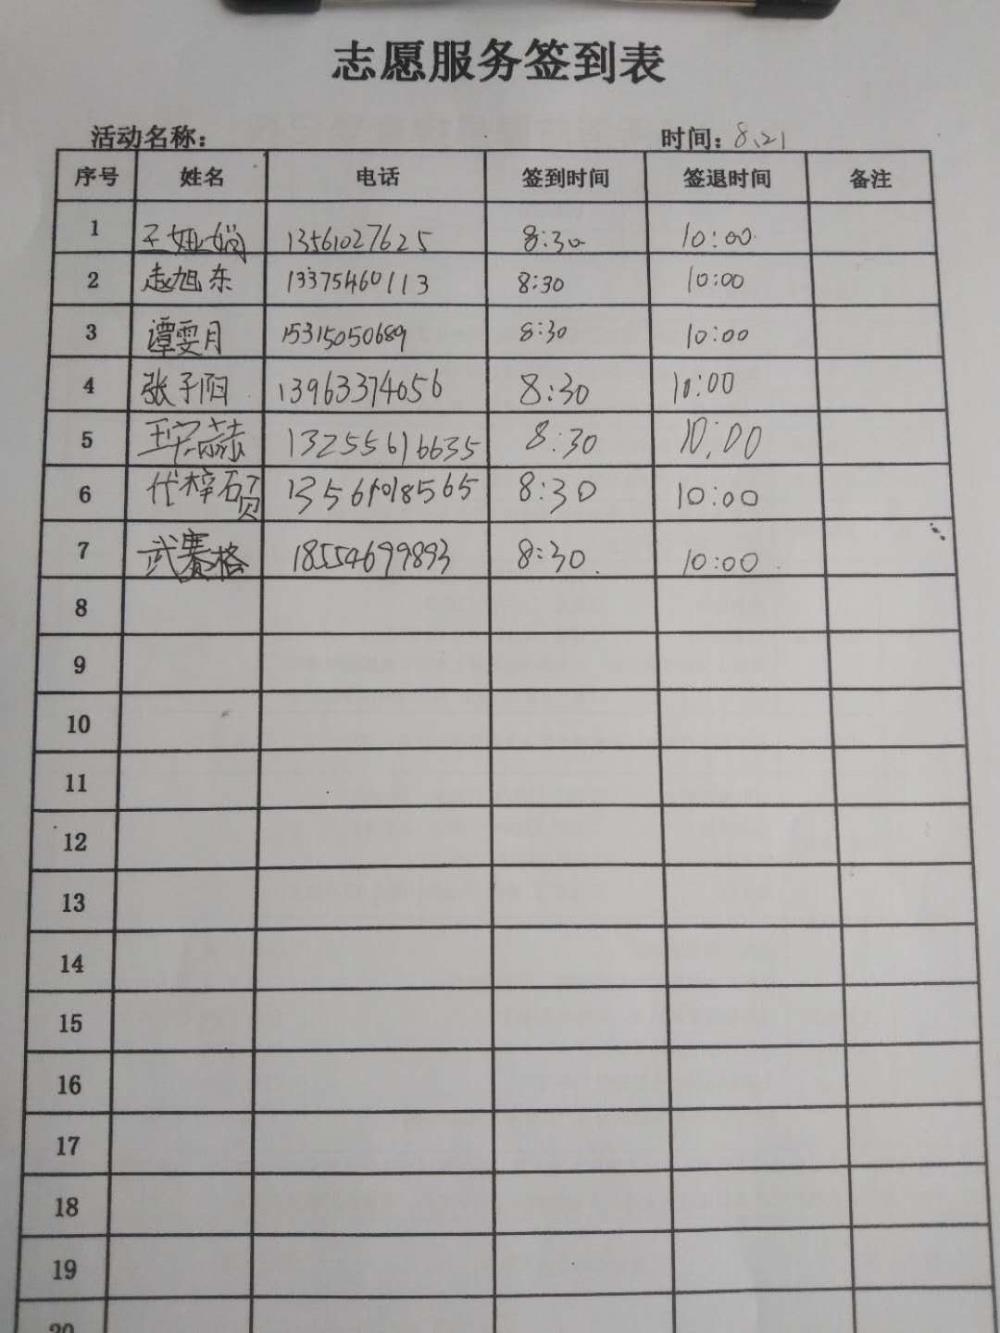 志愿服务签到表
活动名称: 时间: 8.21
序号 姓名 电话 签到时间 签退时间 备注
1 王妞娟 13561027625 8:30 10:00
2 赵旭东 13375460113 8:30 10:00
3 谭雯月 15315050689 8:30 10:00
4 张子阳 13963374056 8:30 10:00
5 13255616635 8:30 10:00
6 代梓硕 13561018565 8:30 10:00
7 武赛格 18554699893 8:30 10:00
8
9
10
11
12
13
14
15
16
17
18
19
20